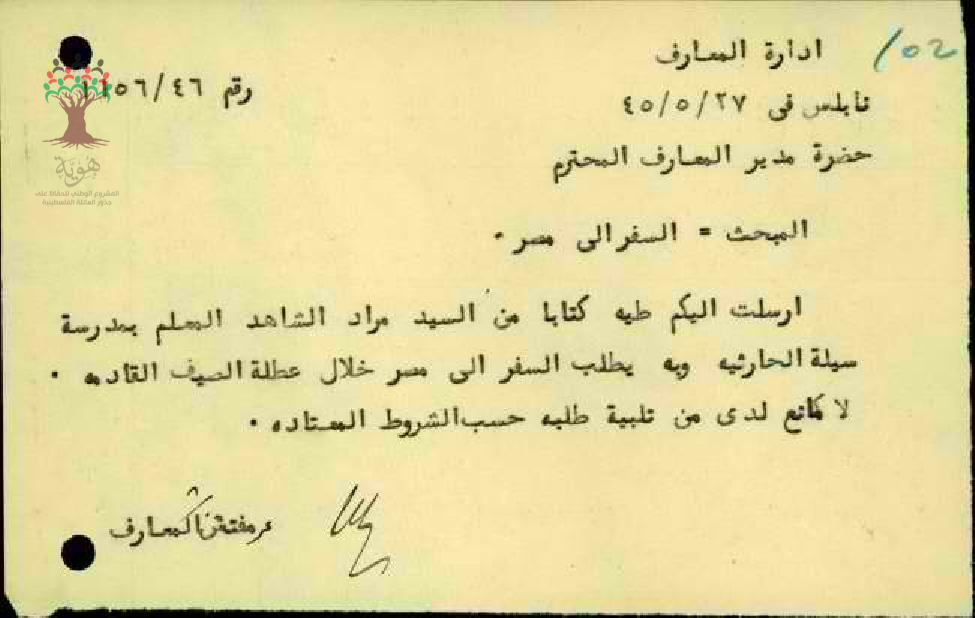 102
ادارة المعارف
رقم ١١٥٦/٤٦
نابلس في ٤٥/٥/٢٧
حضرة مدير المعارف المحترم
المبحث = السفر الى مصر ٠
ارسلت اليكم طيه كتابا من السيد مراد الشاهد المعلم بمدرسة
سيلة الحارثيه وبه يطلب السفر الى مصر خلال عطلة الصيف القادمه ٠
لا مانع لدى من تلبية طلبه حسب الشروط المعتاده ٠
المعارف
هوية
المشروع الوطني للحفاظ على
جذور العائلة الفلسطينية